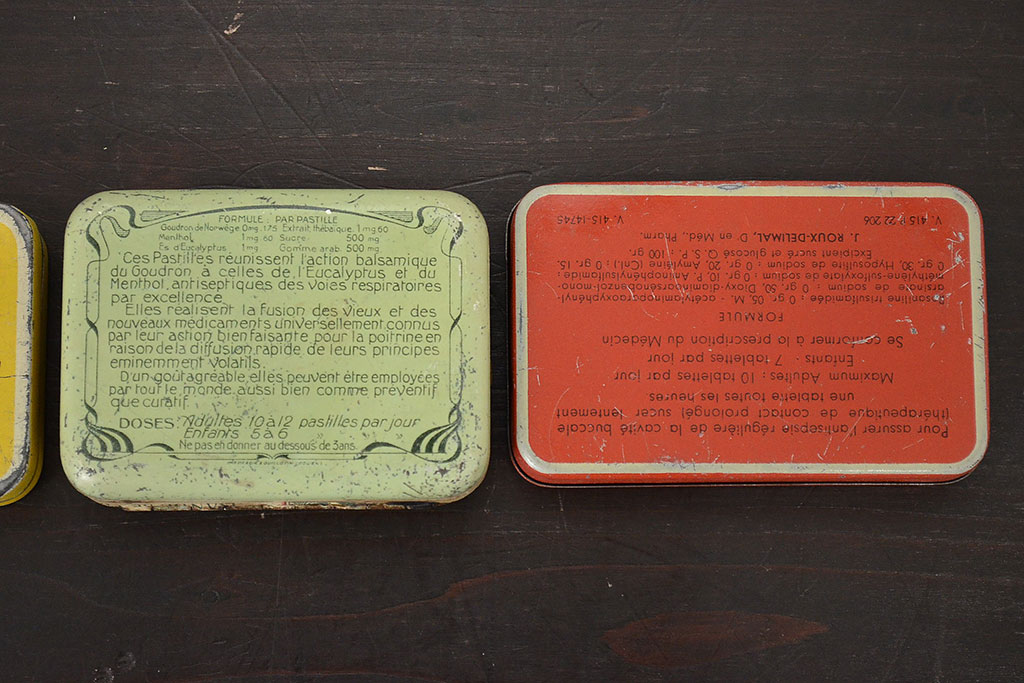 FORMULE PAR PASTILLE
Goudron de Norwège 0mg.175 Extrait thébaïque 1mg60
Menthol 1mg 60 Sucre 500 mg
Es d'Eucalyptus 1mg Gomme arab. 500mg
Ces Pastilles réunissent l'action balsamique
du Goudron à celles de l'Eucalyptus et du
Menthol, antiseptiques des Voies respiratoires
par excellence.
Elles réalisent la fusion des vieux et des
nouveaux médicaments universellement connus
par leur action bienfaisante pour la poitrine en
raison de la diffusion rapide de leurs principes
eminemment volatils.
D'un goût agréable elles peuvent être employées
par tout le monde aussi bien comme préventif
que curatif.
DOSES: Adultes 10 à 12 pastilles par jour
Enfants 5 à 6
Ne pas en donner au dessous de 3 ans.
Pour assurer l'antisepsie régulière de la cavité buccale
(thérapeutique de contact prolongé) sucer lentement
une tablette toutes les heures
Maximum Adultes : 10 tablettes par jour
Enfants - 7 tablettes par jour
Se conformer à la prescription du Médecin
FORMULE
Rosaniline trisulfamidée : 0 gr. 05, M - acétylaminoparaoxyphényl-
arsinate de sodium : 0 gr. 50, Dioxy-diaminoarsénobenzol-mono-
méthylène-sulfoxylate de sodium : 0 gr. 10, P. Aminophénylsulfamide :
0 gr. 30, Hyposulfite de sodium : 0 gr. 20, Amyléine (Chl.) : 0 gr. 15.
Excipient sucré et glucosé Q. S. P. : 100 gr.
J. ROUX-DELIMAL, Dr en Méd., Pharm.
V. 415 - 22 206 V. 415-14745